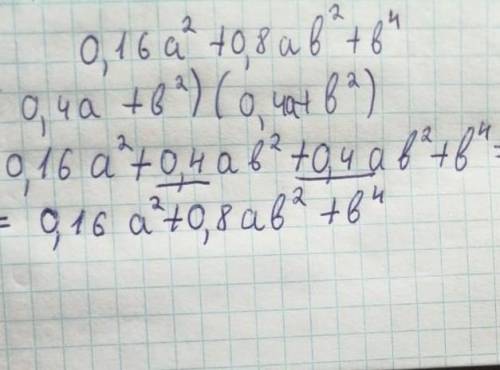 0,16a²+0,8ab²+b⁴
0,4a+b²)(0,4a+b²)
0,16a²+0,4ab²+0,4ab²+b⁴=
= 0,16a²+0,8ab²+b⁴